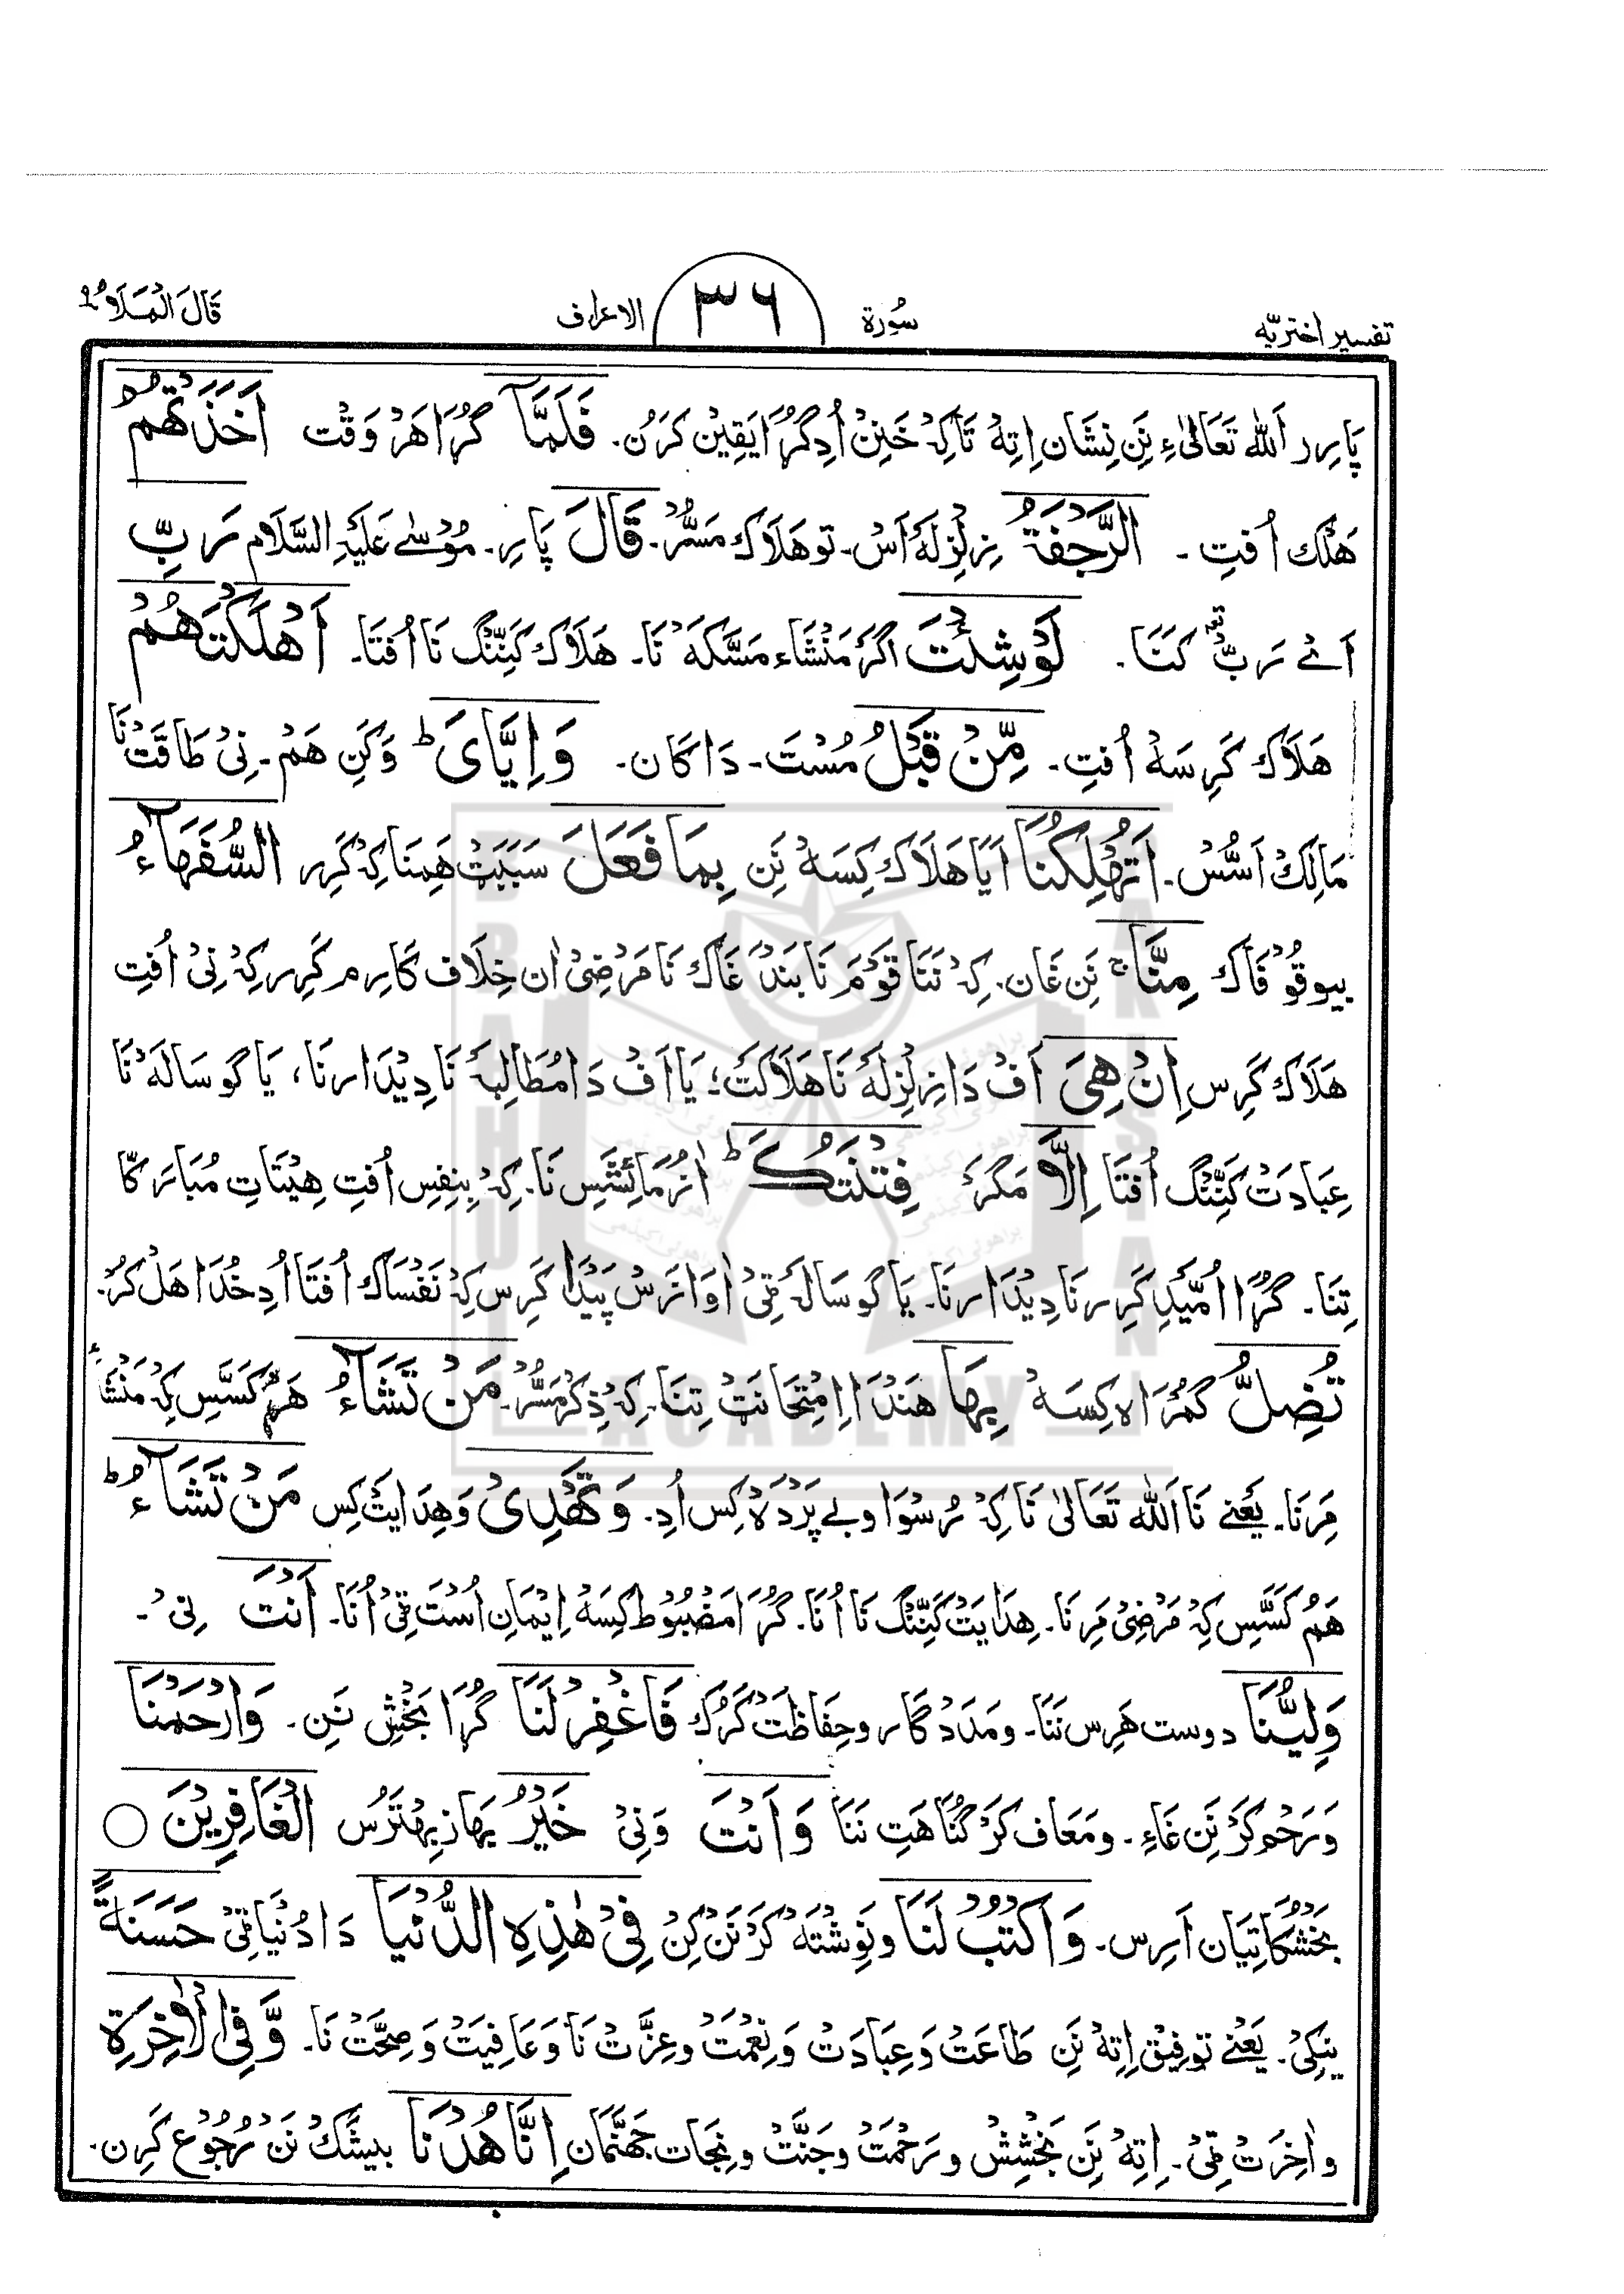 تفسیر اختریّہ
سُورۃ
۳۶
الاعراف
قَالَ الْمَلَاُ ۹
پَارِر اَللہ تَعَالٰیءِ نَنِ نِشَان اِتِہْ تَاکِہْ خَنِنْ اُدِ گُڑَا یَقِیْن کَرَن۔ فَلَمَّآ گُڑَا ھَرْ وَقْت اَخَذَتْھُمُ
ھَلْک اُفتِ ۔ الرَّجْفَۃُ زِلْزِلَہ اَسْ۔ تو ھَلَاک مَسُّرْ۔ قَالَ پَارِ۔ مُوْسٰے عَلَیْہِ السَّلَام رَبِّ
اَےْ رَبّ کَنَا۔ لَوْ شِئْتَ اگَرْ مَنْشَاء مَسَّکَہ نَا۔ ھَلَاک کَنِنَّگ نَا اُفتَا۔ اَھْلَکْتَھُمْ
ھَلَاک کَرِسَہْ اُفتِ۔ مِّنْ قَبْلُ مُسْتَ۔ دَاکَان۔ وَ اِیَّایَ ؕ وَکَنِ ھَمْ۔ نِیْ طَاقَتْ نَا
مَالِکْ اَسُّسْ۔ اَتُھْلِکُنَا اَیَا ھَلَاک کِسَہْ نَنِ بِمَا فَعَلَ سَبَبَتْ ھَمِنَا کِہْ کَرِر السُّفَھَآءُ
بیوقُوْفَاک مِنَّا ۚ نَنِ غَان۔ کِہْ نَنَا قَوْمَ نَا بَنْدَغَاک نَا مَرْضِیْ اٰن خِلَاف کَارِم کَرِر کِہْ نِیْ اُفتِ
ھَلَاک کَرِس اِنْ ھِیَ اَفْ دَا زِلْزِلَہْ نَا ھَلَاکَتْ؛ یَا اَفْ دَا مُطَالِبَہْ نَا دِیْدَار نَا، یَا گوسَالَہْ نَا
عِبَادَتْ کَنِنَّگ اُفتَا اِلَّا مَگَرْ فِتْنَتُکَ ؕ اٰزْمَائِشَسِ نَا۔ کِہْ بِنِفِس اُفتِ ھِیْتَاتِ مُبَارَکَا
تِنَا۔ گُڑَا اُمِّیْدِ کَرِر نَا دِیْدَار نَا۔ یَا گوسَالَہْ ٹِیْ اٰوَازَسْ پَیْدَا کَرِس کِہْ نَفْسَاک اُفتَا اُدِ خُدَا ھَلْکُرْ۔
تُضِلُّ گُمْرَاہ کِسَہْ بِھَا ھَنْدَا اِمْتِحَانَتْ تِنَا۔ کِہْ ذِکْر مَسُّرْ۔ مَنْ تَشَآءُ ھَمْ کَسَّسِ کِہْ مَنْشَاءِ
مَرِنَا۔ یَعْنے نَا اَللہ تَعَالٰی نَا کِہْ رُسْوَا و بے پَرْدَہ کِس اُدِ۔ وَ تَھْدِیْ وَ ھِدَایَتْ کِس مَنْ تَشَآءُ ؕ
ھَمْ کَسَّسِ کِہْ مَرْضِیْ مَرِنَا۔ ھِدَایَتْ کَنِنَّگ نَا اُنَا۔ گُڑَا مَضْبُوْط کِسَہْ اِیْمَانِ اُسْتَ ٹِیْ اُنَا۔ اَنْتَ نِیْ ۔
وَلِیُّنَا دوست ھَرِس نَنَا۔ و مَدَدْگَار و حِفَاظَتْ کَرُک فَاغْفِرْلَنَا گُڑَا بَخْشِ نَنِ۔ وَارْحَمْنَا
وَ رَحْم کَرْ نَنِ غَاءِ۔ و مَعَاف کَرْ گُنَاھَتِ نَنَا وَ اَنْتَ وَنِیْ خَیْرُ بھَاز بِھْتَرُس الْغَافِرِیْنَ ○
بَخْشُکَاتِیَان اَرِس۔ وَ اکْتُبْ لَنَا و نَوِشْتَہْ کَرْ نَنْ کِنْ فِیْ ھٰذِہِ الدُّنْیَا دَا دُنْیَا ٹِیْ حَسَنَۃً
نیکِیْ۔ یَعْنے توفِیْق اِتِہْ نَنِ طَاعَتْ وَعِبَادَتْ وَ نِعْمَتْ و عِزَّتْ نَا وَ عَافِیَتْ وَ صِحَّتْ نَا۔ وَّ فِی الْاٰخِرَۃِ
و اٰخِرَتْ ٹِیْ۔ اِتِہْ نَنِ بَخْشِشْ و رَحْمَتْ و جَنَّتْ و نِجَات جَھَنَّمَان اِنَّا ھُدْنَا بیشَّکْ نَنْ رُجُوْع کَرِن۔